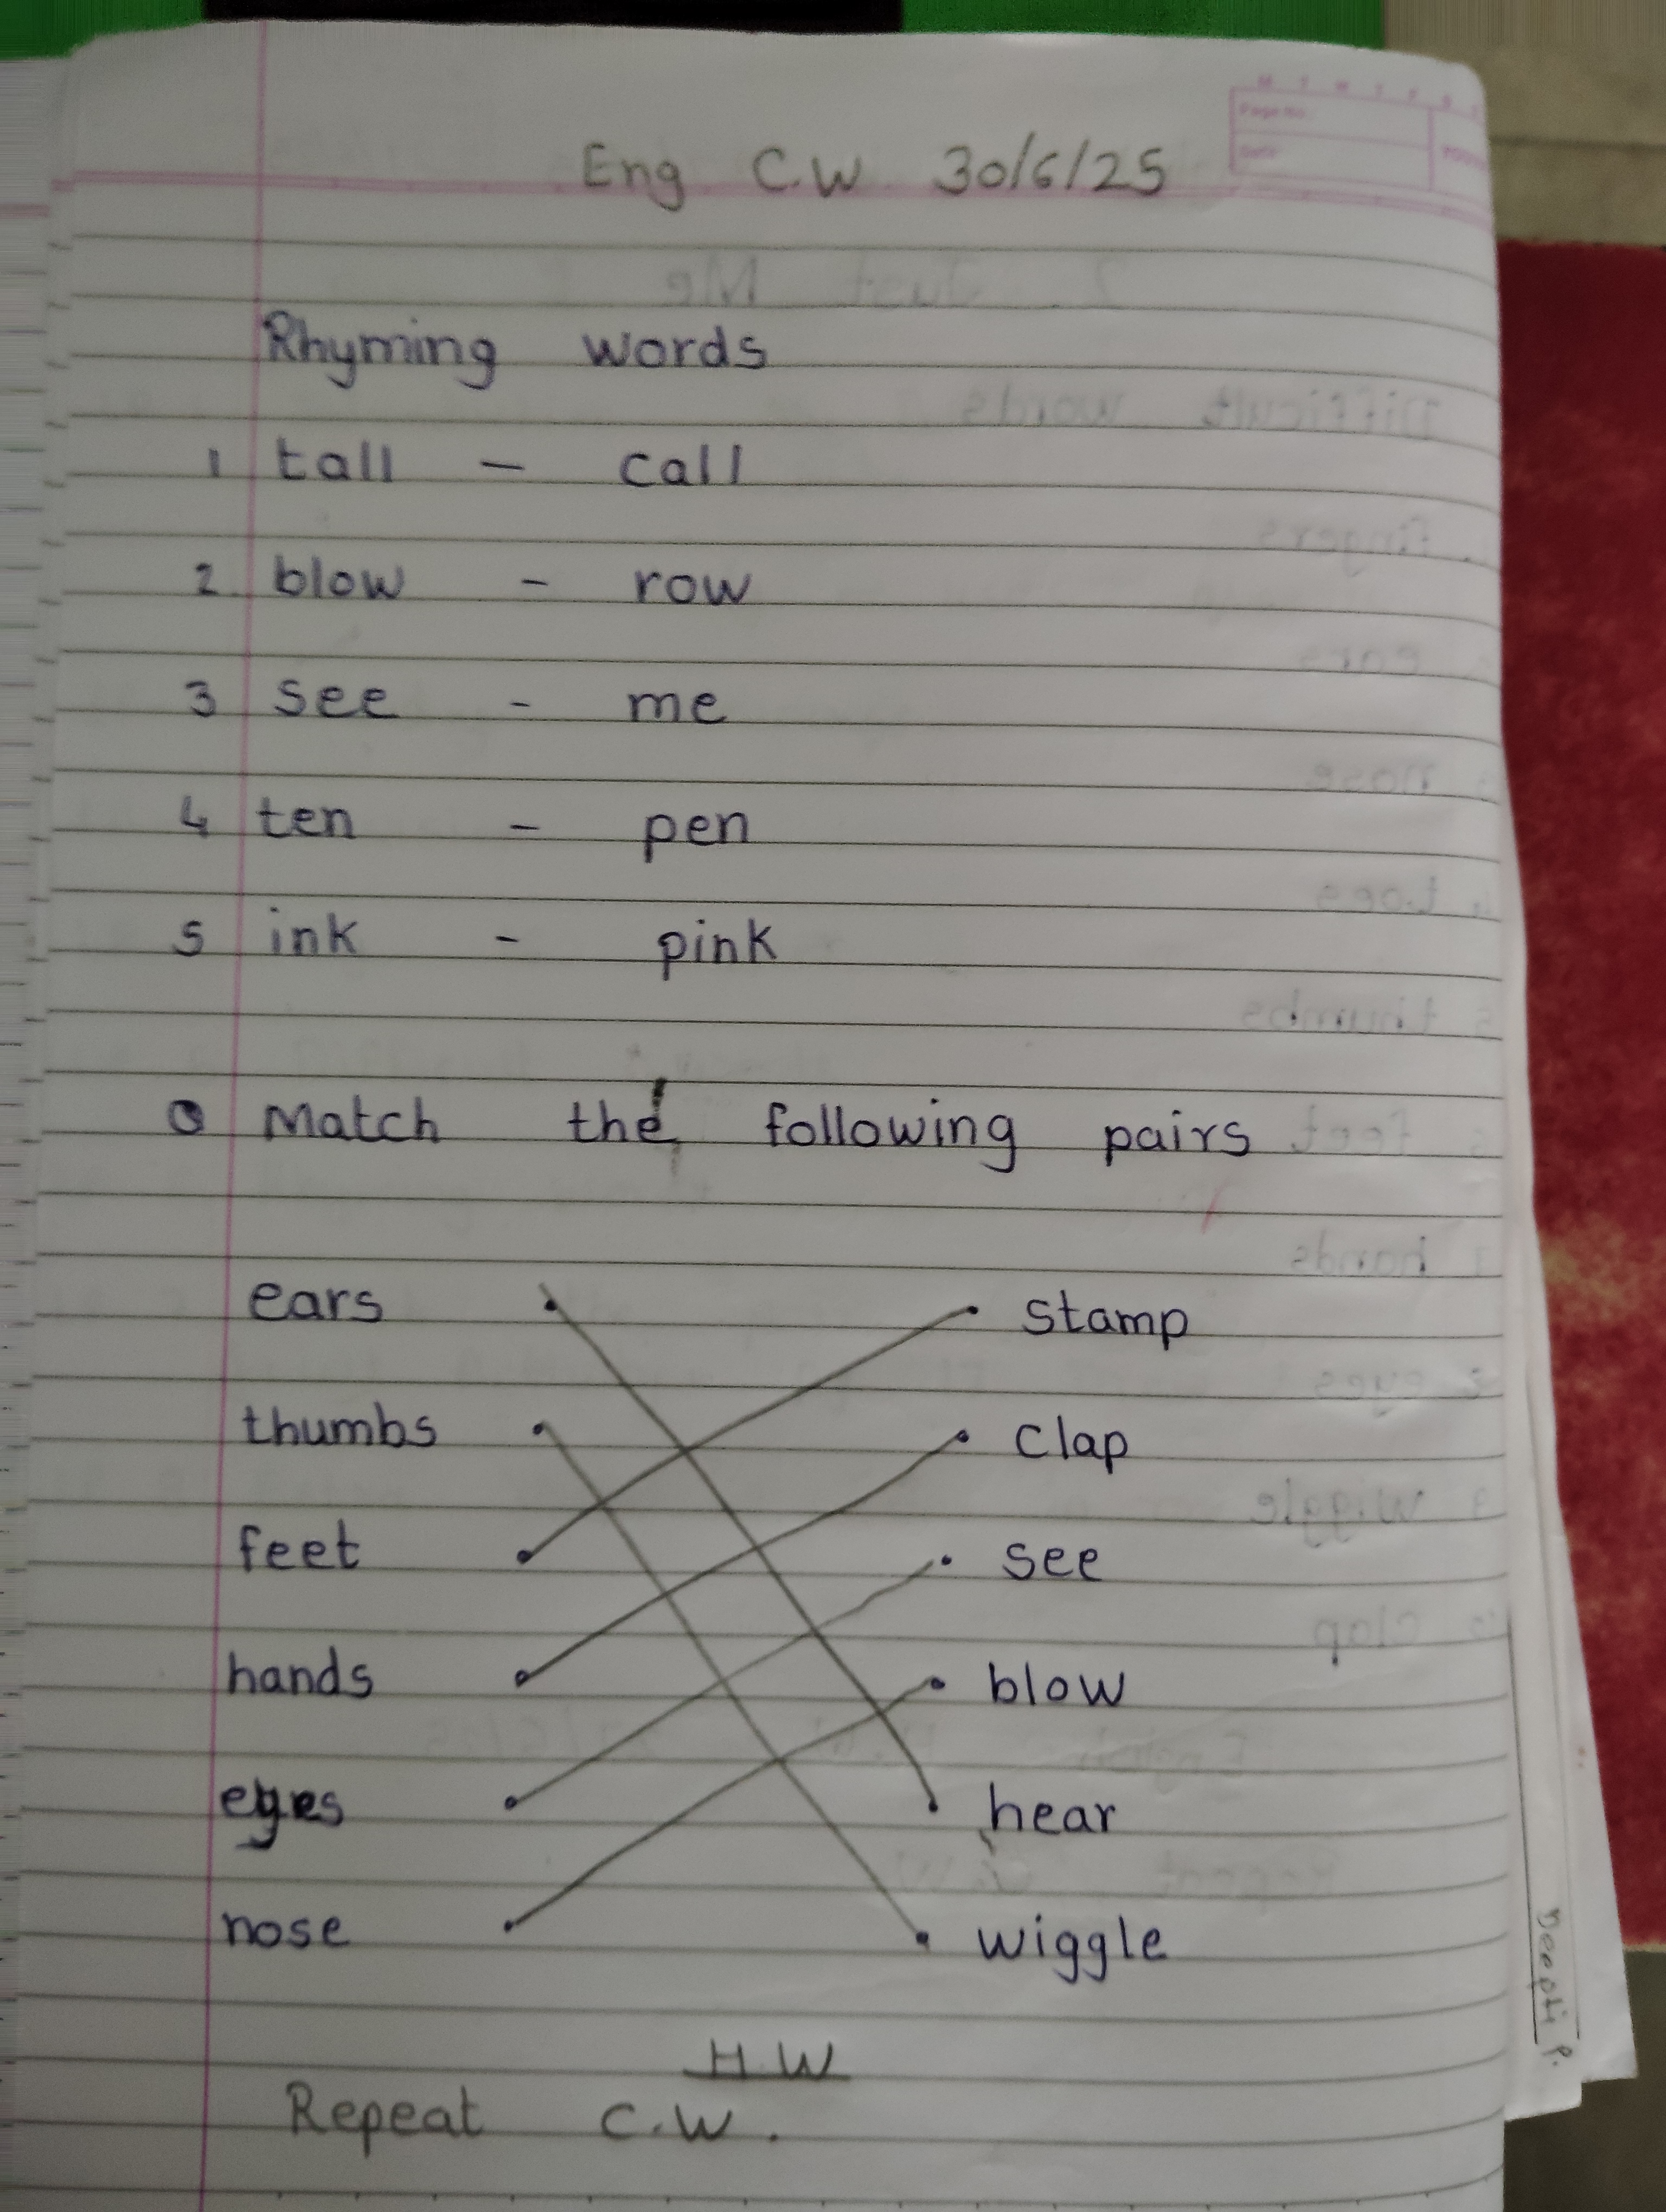 Eng C.W 30/6/25
Rhyming words
1 tall - call
2. blow - row
3 see - me
4 ten - pen
5 ink - pink
Q Match the following pairs
ears stamp
thumbs clap
feet see
hands blow
eyes hear
nose wiggle
H.W
Repeat C.W.
Deepti P.